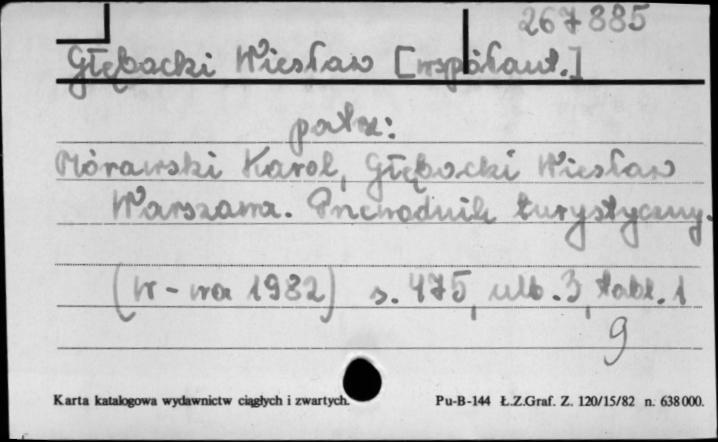 267885
Głębocki Wiesław [współaut.]
patrz:
Mórawski Karol, Głębocki Wiesław
Warszawa. Przewodnik turystyczny.
(W-wa 1982) s. 475, ulb. 3, tabl. 1
9
Karta katalogowa wydawnictw ciągłych i zwartych. Pu-B-144 Ł.Z.Graf. Z. 120/15/82 n. 638000.